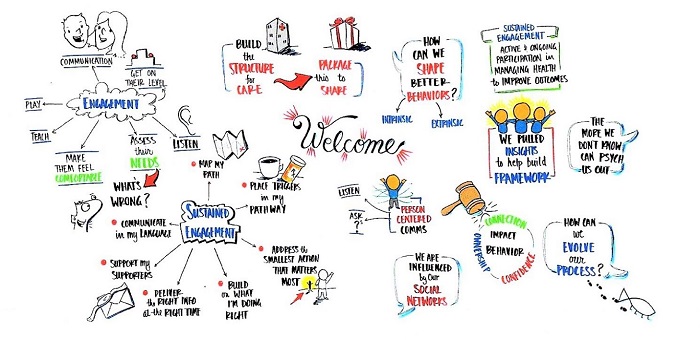 COMMUNICATION
GET ON
THEIR LEVEL
ENGAGEMENT
PLAY
TEACH
MAKE
THEM FEEL
COMFORTABLE
ASSESS
their
NEEDS
LISTEN
WHAT'S
WRONG?
MAP MY
PATH
PLACE TRIGGERS
in my
PATHWAY
SUSTAINED
ENGAGEMENT
COMMUNICATE
in my LANGUAGE
SUPPORT my
SUPPORTERS
DELIVER
the RIGHT INFO
at the RIGHT TIME
BUILD
on WHAT
I'M DOING
RIGHT
ADDRESS the
SMALLEST ACTION
THAT MATTERS
MOST
BUILD
the
STRUCTURE
for
CARE
PACKAGE
this to
SHARE
Welcome
HOW
CAN WE
SHAPE
BETTER
BEHAVIORS?
INTRINSIC
EXTRINSIC
LISTEN
ASK
?
PERSON
CENTERED
COMMS
WE ARE
INFLUENCED
by our
SOCIAL
NETWORKS
SUSTAINED
ENGAGEMENT
ACTIVE & ONGOING
PARTICIPATION in
MANAGING HEALTH
to IMPROVE OUTCOMES
WE PULLED
INSIGHTS
to help build
FRAMEWORK
THE
MORE WE
DON'T KNOW
CAN PSYCH
US OUT
CONNECTION
IMPACT
BEHAVIOR
OWNERSHIP
CONFIDENCE
HOW CAN
we
EVOLVE
our
PROCESS?